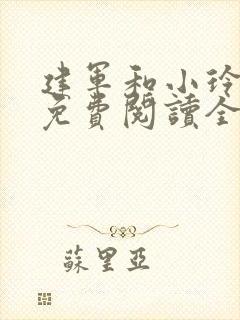 建军和小玲
免費閱讀全
蘇里亞